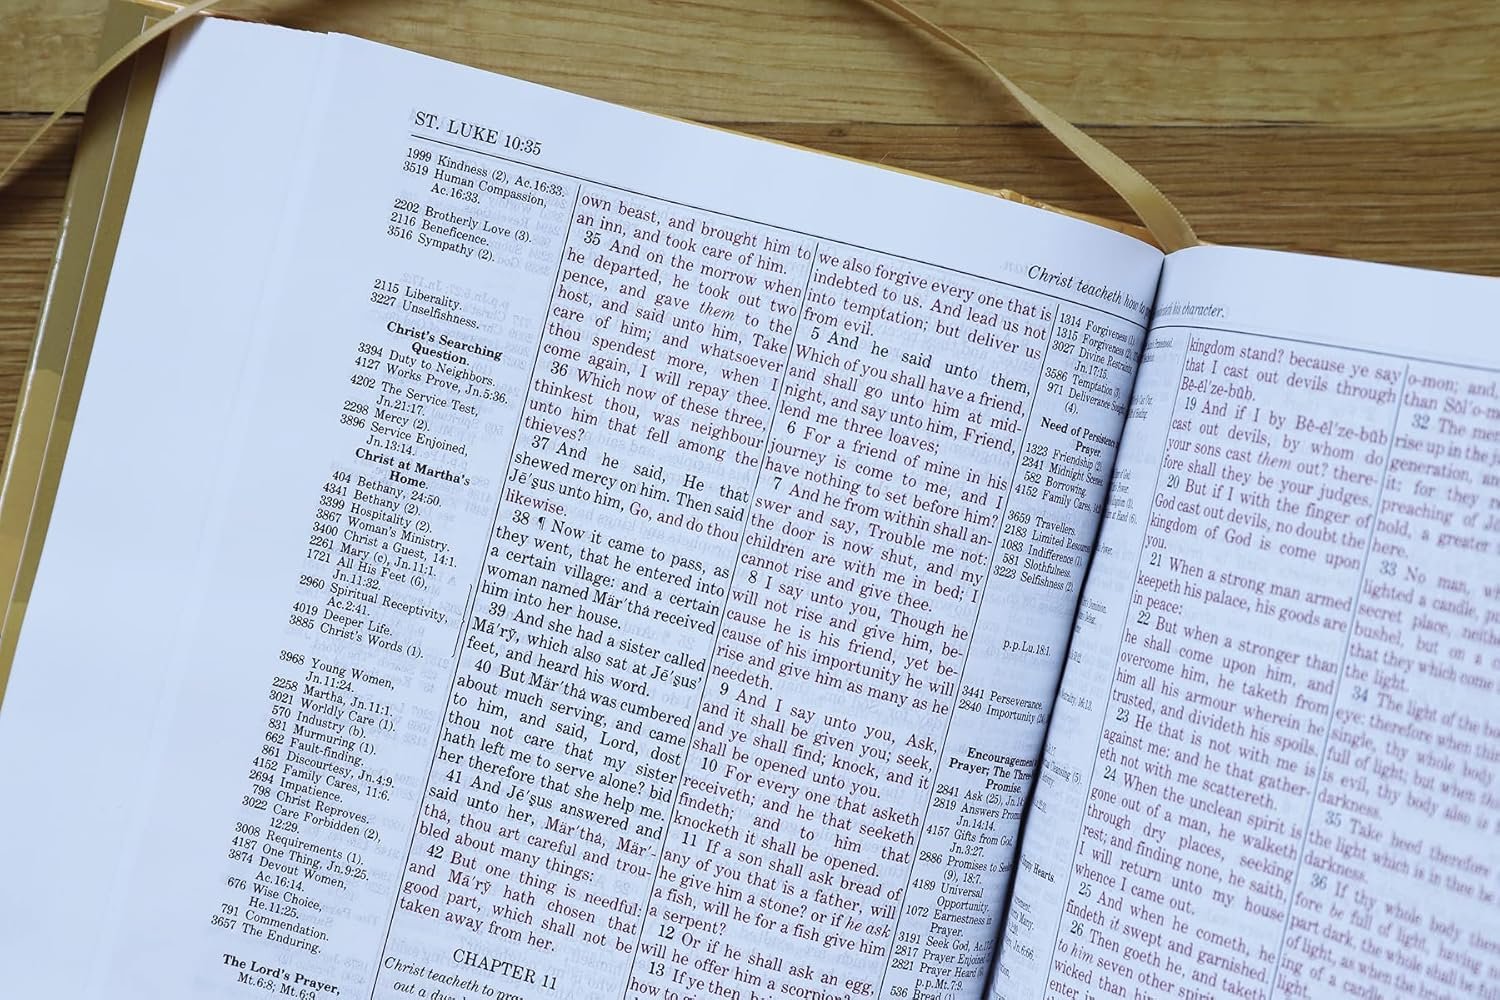 ST. LUKE 10:35
1999 Kindness (2), Ac.16:33.
3519 Human Compassion,
Ac.16:33.
2202 Brotherly Love (3).
2116 Beneficence.
3516 Sympathy (2).
2115 Liberality.
3227 Unselfishness.
Christ's Searching
Question.
3394 Duty to Neighbors.
4127 Works Prove, Jn.5:36.
4202 The Service Test,
Jn.21:17.
2298 Mercy (2).
3896 Service Enjoined,
Jn.13:14.
Christ at Martha's
Home.
404 Bethany, 24:50.
4341 Bethany (2).
3399 Hospitality (2).
3867 Woman's Ministry.
3400 Christ a Guest, 14:1.
2261 Mary (c), Jn.11:1.
1721 All His Feet (6),
Jn.11:32.
2960 Spiritual Receptivity,
Ac.2:41.
4019 Deeper Life.
3885 Christ's Words (1).
3968 Young Women,
Jn.11:24.
2258 Martha, Jn.11:1.
3021 Worldly Care (1).
570 Industry (b).
831 Murmuring (1).
662 Fault-finding.
861 Discourtesy, Jn.4:9.
4152 Family Cares, 11:6.
2694 Impatience.
798 Christ Reproves.
3022 Care Forbidden (2),
12:29.
3008 Requirements (1).
4187 One Thing, Jn.9:25.
3874 Devout Women,
Ac.16:14.
676 Wise Choice,
He.11:25.
791 Commendation.
3657 The Enduring.
The Lord's Prayer,
Mt.6:8; Mt.6:9
own beast, and brought him to
an inn, and took care of him.
35 And on the morrow when
he departed, he took out two
pence, and gave them to the
host, and said unto him, Take
care of him; and whatsoever
thou spendest more, when I
come again, I will repay thee.
36 Which now of these three,
thinkest thou, was neighbour
unto him that fell among the
thieves?
37 And he said, He that
shewed mercy on him. Then said
Jē´ṣus unto him, Go, and do thou
likewise.
38 ¶ Now it came to pass, as
they went, that he entered into
a certain village: and a certain
woman named Mär´thȧ received
him into her house.
39 And she had a sister called
Mā´rў, which also sat at Jē´ṣus'
feet, and heard his word.
40 But Mär´thȧ was cumbered
about much serving, and came
to him, and said, Lord, dost
thou not care that my sister
hath left me to serve alone? bid
her therefore that she help me.
41 And Jē´ṣus answered and
said unto her, Mär´thȧ, Mär´-
thȧ, thou art careful and trou-
bled about many things:
42 But one thing is needful:
and Mā´rў hath chosen that
good part, which shall not be
taken away from her.
CHAPTER 11
Christ teacheth to pray
out a
Christ teacheth how to
we also forgive every one that is
indebted to us. And lead us not
into temptation; but deliver us
from evil.
5 And he said unto them,
Which of you shall have a friend,
and shall go unto him at mid-
night, and say unto him, Friend,
lend me three loaves;
6 For a friend of mine in his
journey is come to me, and I
have nothing to set before him?
7 And he from within shall an-
swer and say, Trouble me not:
the door is now shut, and my
children are with me in bed; I
cannot rise and give thee.
8 I say unto you, Though he
will not rise and give him, be-
cause he is his friend, yet be-
cause of his importunity he will
rise and give him as many as he
needeth.
9 And I say unto you, Ask,
and it shall be given you; seek,
and ye shall find; knock, and it
shall be opened unto you.
10 For every one that asketh
receiveth; and he that seeketh
findeth; and to him that
knocketh it shall be opened.
11 If a son shall ask bread of
any of you that is a father, will
he give him a stone? or if he ask
a fish, will he for a fish give him
a serpent?
12 Or if he shall ask an egg,
will he offer him a scorpion?
13 If ye then,
how to
1314 Forgiveness (1)
1315 Forgiveness (2),
3027 Divine Restraint,
Jn.17:15.
3586 Temptation
971 Deliverance
(4).
Need of
Prayer.
1323 Friendship (2).
2341 Midnight Scenes.
582 Borrowing.
4152 Family Cares,
3659 Travellers.
2183 Limited
1083 Indifference (1).
581 Slothfulness.
3223 Selfishness (2).
p.p.Lu.18:1.
3441 Perseverance.
2840 Importunity
Encouragement
Prayer; The Three
Promise
2841 Ask (25),
2819 Answers
Jn.14:14.
4157 Gifts from God,
Jn.3:27.
2886 Promises to
(9), 18:7.
4189 Universal
Opportunity.
1072 Earnestness in
Prayer.
3191 Seek God,
2817 Prayer Enjoined
2821 Prayer Heard
p.p.Mt.7:9.
536 Bread (1)
his character.
kingdom stand? because ye say
that I cast out devils through
Bē-ĕl´ze-bŭb.
19 And if I by Bē-ĕl´ze-bŭb
cast out devils, by whom do
your sons cast them out? there-
fore shall they be your judges.
20 But if I with the finger of
God cast out devils, no doubt the
kingdom of God is come upon
you.
21 When a strong man armed
keepeth his palace, his goods are
in peace:
22 But when a stronger than
he shall come upon him, and
overcome him, he taketh from
him all his armour wherein he
trusted, and divideth his spoils.
23 He that is not with me is
against me: and he that gather-
eth not with me scattereth.
24 When the unclean spirit is
gone out of a man, he walketh
through dry places, seeking
rest; and finding none, he saith,
I will return unto my house
whence I came out.
25 And when he cometh, he
findeth it swept and garnished.
26 Then goeth he, and taketh
to him seven other spirits
wicked than
enter in
o-mon; and,
than Sŏl´o-
32 The men
rise up in the
generation, and
it: for they
preaching of
hold, a greater
here.
33 No man,
lighted a candle,
secret place,
bushel, but on a
that they which come
the light.
34 The light of the
eye: therefore when
single, thy whole body
full of light; but when
is evil, thy body also is
darkness.
35 Take heed therefore
the light which is in thee be
darkness.
36 If thy whole body
fore be full of light, having
part dark, the whole shall be
of light, as when the
ing of a candle
light.